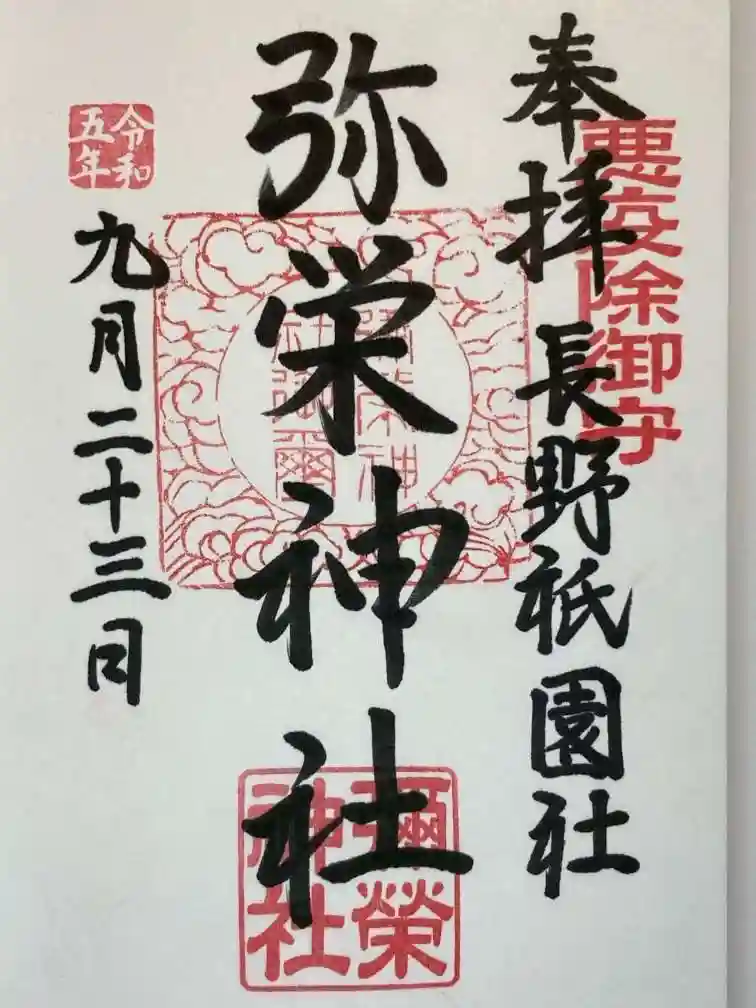 奉拝 長野祇園社
悪疫除御守
弥栄神社
彌榮神社御璽
彌榮
神社
令和
五年
九月二十三日